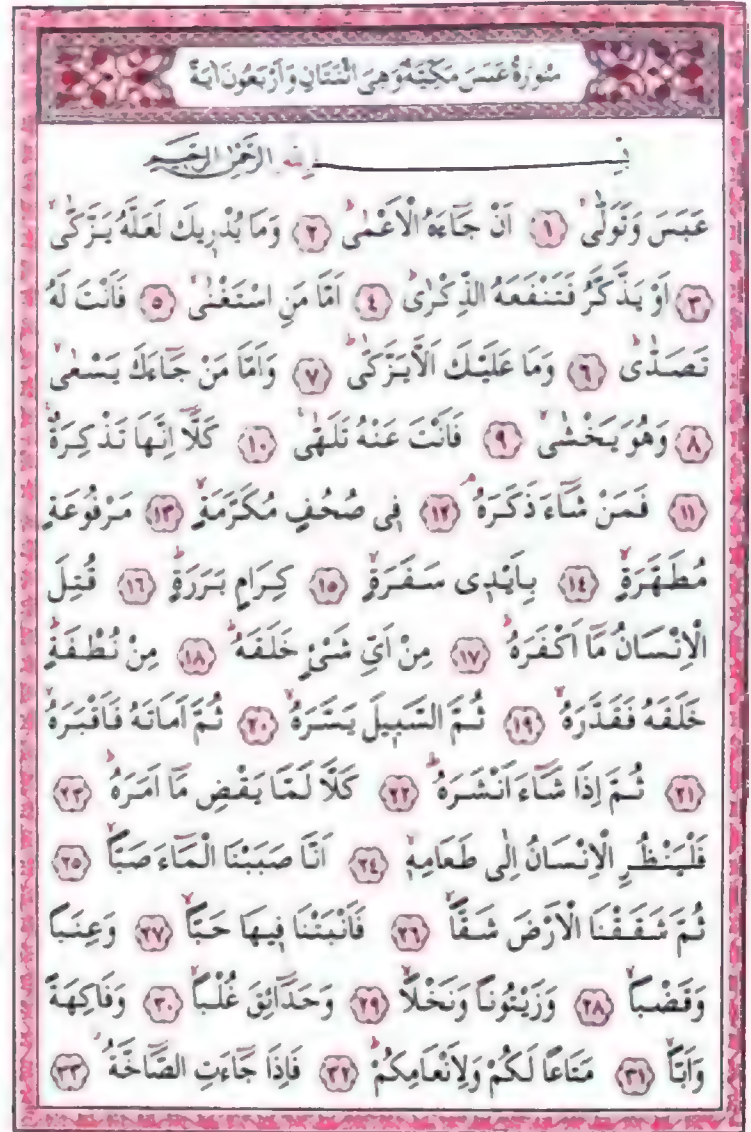 سُورَةُ عَبَسَ مَكِّيَّةٌ وَهِيَ اثْنَتَانِ وَأَرْبَعُونَ اٰيَةً
بِسْــــــــــمِ اللهِ الرَّحْمٰنِ الرَّحِيمِ
عَبَسَ وَتَوَلّٰىۙ ﴿١﴾ اَنْ جَٓاءَهُ الْاَعْمٰىۜ ﴿٢﴾ وَمَا يُدْرٖيكَ لَعَلَّهُ يَزَّكّٰىۙ
﴿٣﴾ اَوْ يَذَّكَّرُ فَتَنْفَعَهُ الذِّكْرٰىۜ ﴿٤﴾ اَمَّا مَنِ اسْتَغْنٰىۙ ﴿٥﴾ فَاَنْتَ لَهُ
تَصَدّٰىۜ ﴿٦﴾ وَمَا عَلَيْكَ اَلَّا يَزَّكّٰىۜ ﴿٧﴾ وَاَمَّا مَنْ جَٓاءَكَ يَسْعٰىۙ
﴿٨﴾ وَهُوَ يَخْشٰىۙ ﴿٩﴾ فَاَنْتَ عَنْهُ تَلَهّٰىۚ ﴿١٠﴾ كَلَّٓا اِنَّهَا تَذْكِرَةٌۚ
﴿١١﴾ فَمَنْ شَٓاءَ ذَكَرَهُۢ ﴿١٢﴾ فٖى صُحُفٍ مُكَرَّمَةٍۙ ﴿١٣﴾ مَرْفُوعَةٍ
مُطَهَّرَةٍۙ ﴿١٤﴾ بِاَيْدٖى سَفَرَةٍۙ ﴿١٥﴾ كِرَامٍ بَرَرَةٍۜ ﴿١٦﴾ قُتِلَ
الْاِنْسَانُ مَٓا اَكْفَرَهُۜ ﴿١٧﴾ مِنْ اَىِّ شَىْءٍ خَلَقَهُۜ ﴿١٨﴾ مِنْ نُطْفَةٍۜ
خَلَقَهُ فَقَدَّرَهُۙ ﴿١٩﴾ ثُمَّ السَّبٖيلَ يَسَّرَهُۙ ﴿٢٠﴾ ثُمَّ اَمَاتَهُ فَاَقْبَرَهُۙ
﴿٢١﴾ ثُمَّ اِذَا شَٓاءَ اَنْشَرَهُۜ ﴿٢٢﴾ كَلَّا لَمَّا يَقْضِ مَٓا اَمَرَهُۜ ﴿٢٣﴾
فَلْيَنْظُرِ الْاِنْسَانُ اِلٰى طَعَامِهٖۙ ﴿٢٤﴾ اَنَّا صَبَبْنَا الْمَٓاءَ صَبًّاۙ ﴿٢٥﴾
ثُمَّ شَقَقْنَا الْاَرْضَ شَقًّاۙ ﴿٢٦﴾ فَاَنْبَتْنَا فٖيهَا حَبًّاۙ ﴿٢٧﴾ وَعِنَبًا
وَقَضْبًاۙ ﴿٢٨﴾ وَزَيْتُونًا وَنَخْلًاۙ ﴿٢٩﴾ وَحَدَٓائِقَ غُلْبًاۙ ﴿٣٠﴾ وَفَاكِهَةً
وَاَبًّاۙ ﴿٣١﴾ مَتَاعًا لَكُمْ وَلِاَنْعَامِكُمْۜ ﴿٣٢﴾ فَاِذَا جَٓاءَتِ الصَّٓاخَّةُۘ ﴿٣٣﴾